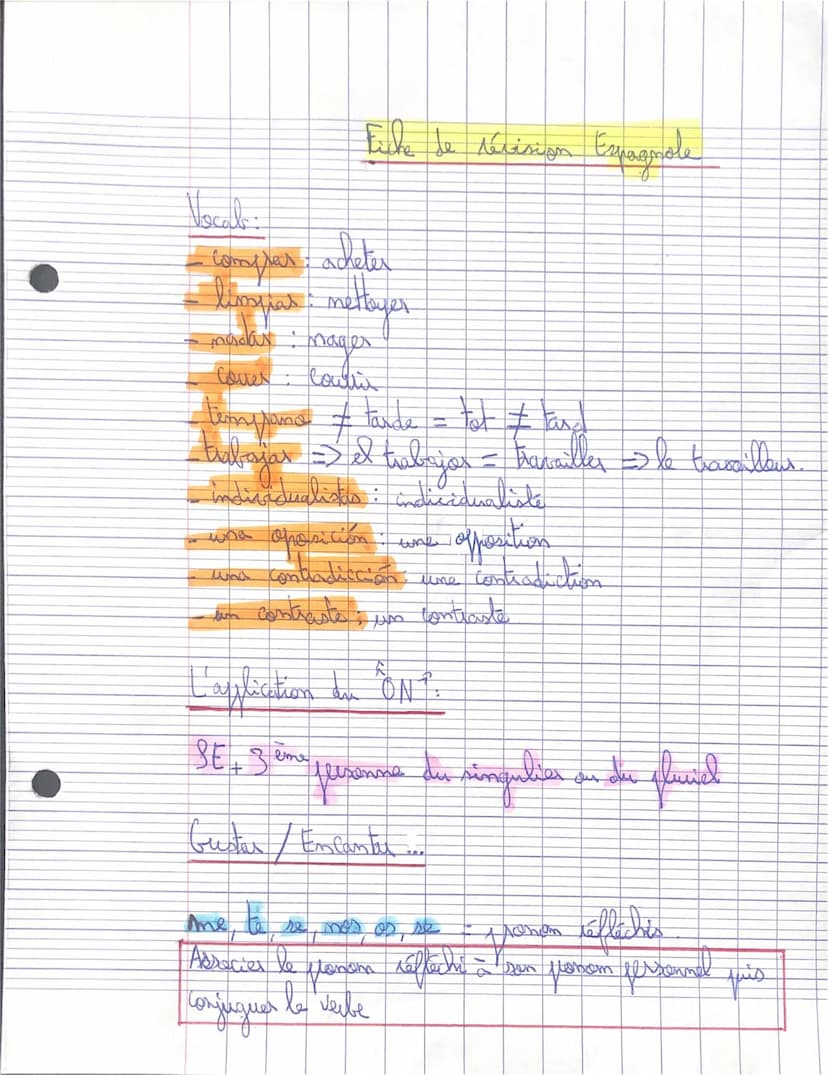 Fiche de révision Espagnole
Vocab :
- comprar : acheter
- limpiar : nettoyer
- nadar : nager
- correr : courrir
- temprano ≠ tarde = tot ≠ tard
- trabajar => el trabajor = travailler => le travailleur.
- individualistas : individualiste
- una oposición : une opposition
- una contradicción : une contradiction
- un contraste : un contraste
L'application du "ON" :
SE + 3ème personne du singulier ou du pluriel
Gustar / Encantar ...
me, te, se, nos, os, se = pronom réfléchis.
Associer le pronom réfléchi à son pronom personnel puis
conjuguer le verbe